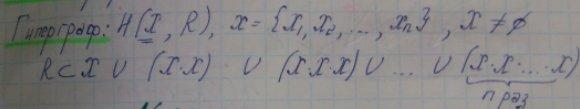 Гиперграф: H(X, R), x = {x₁, x₂, ..., xₙ}, X ≠ ∅
R ⊂ X ∪ (X·X) ∪ (X·X·X) ∪ ... ∪ (X·X·...·X)
n раз